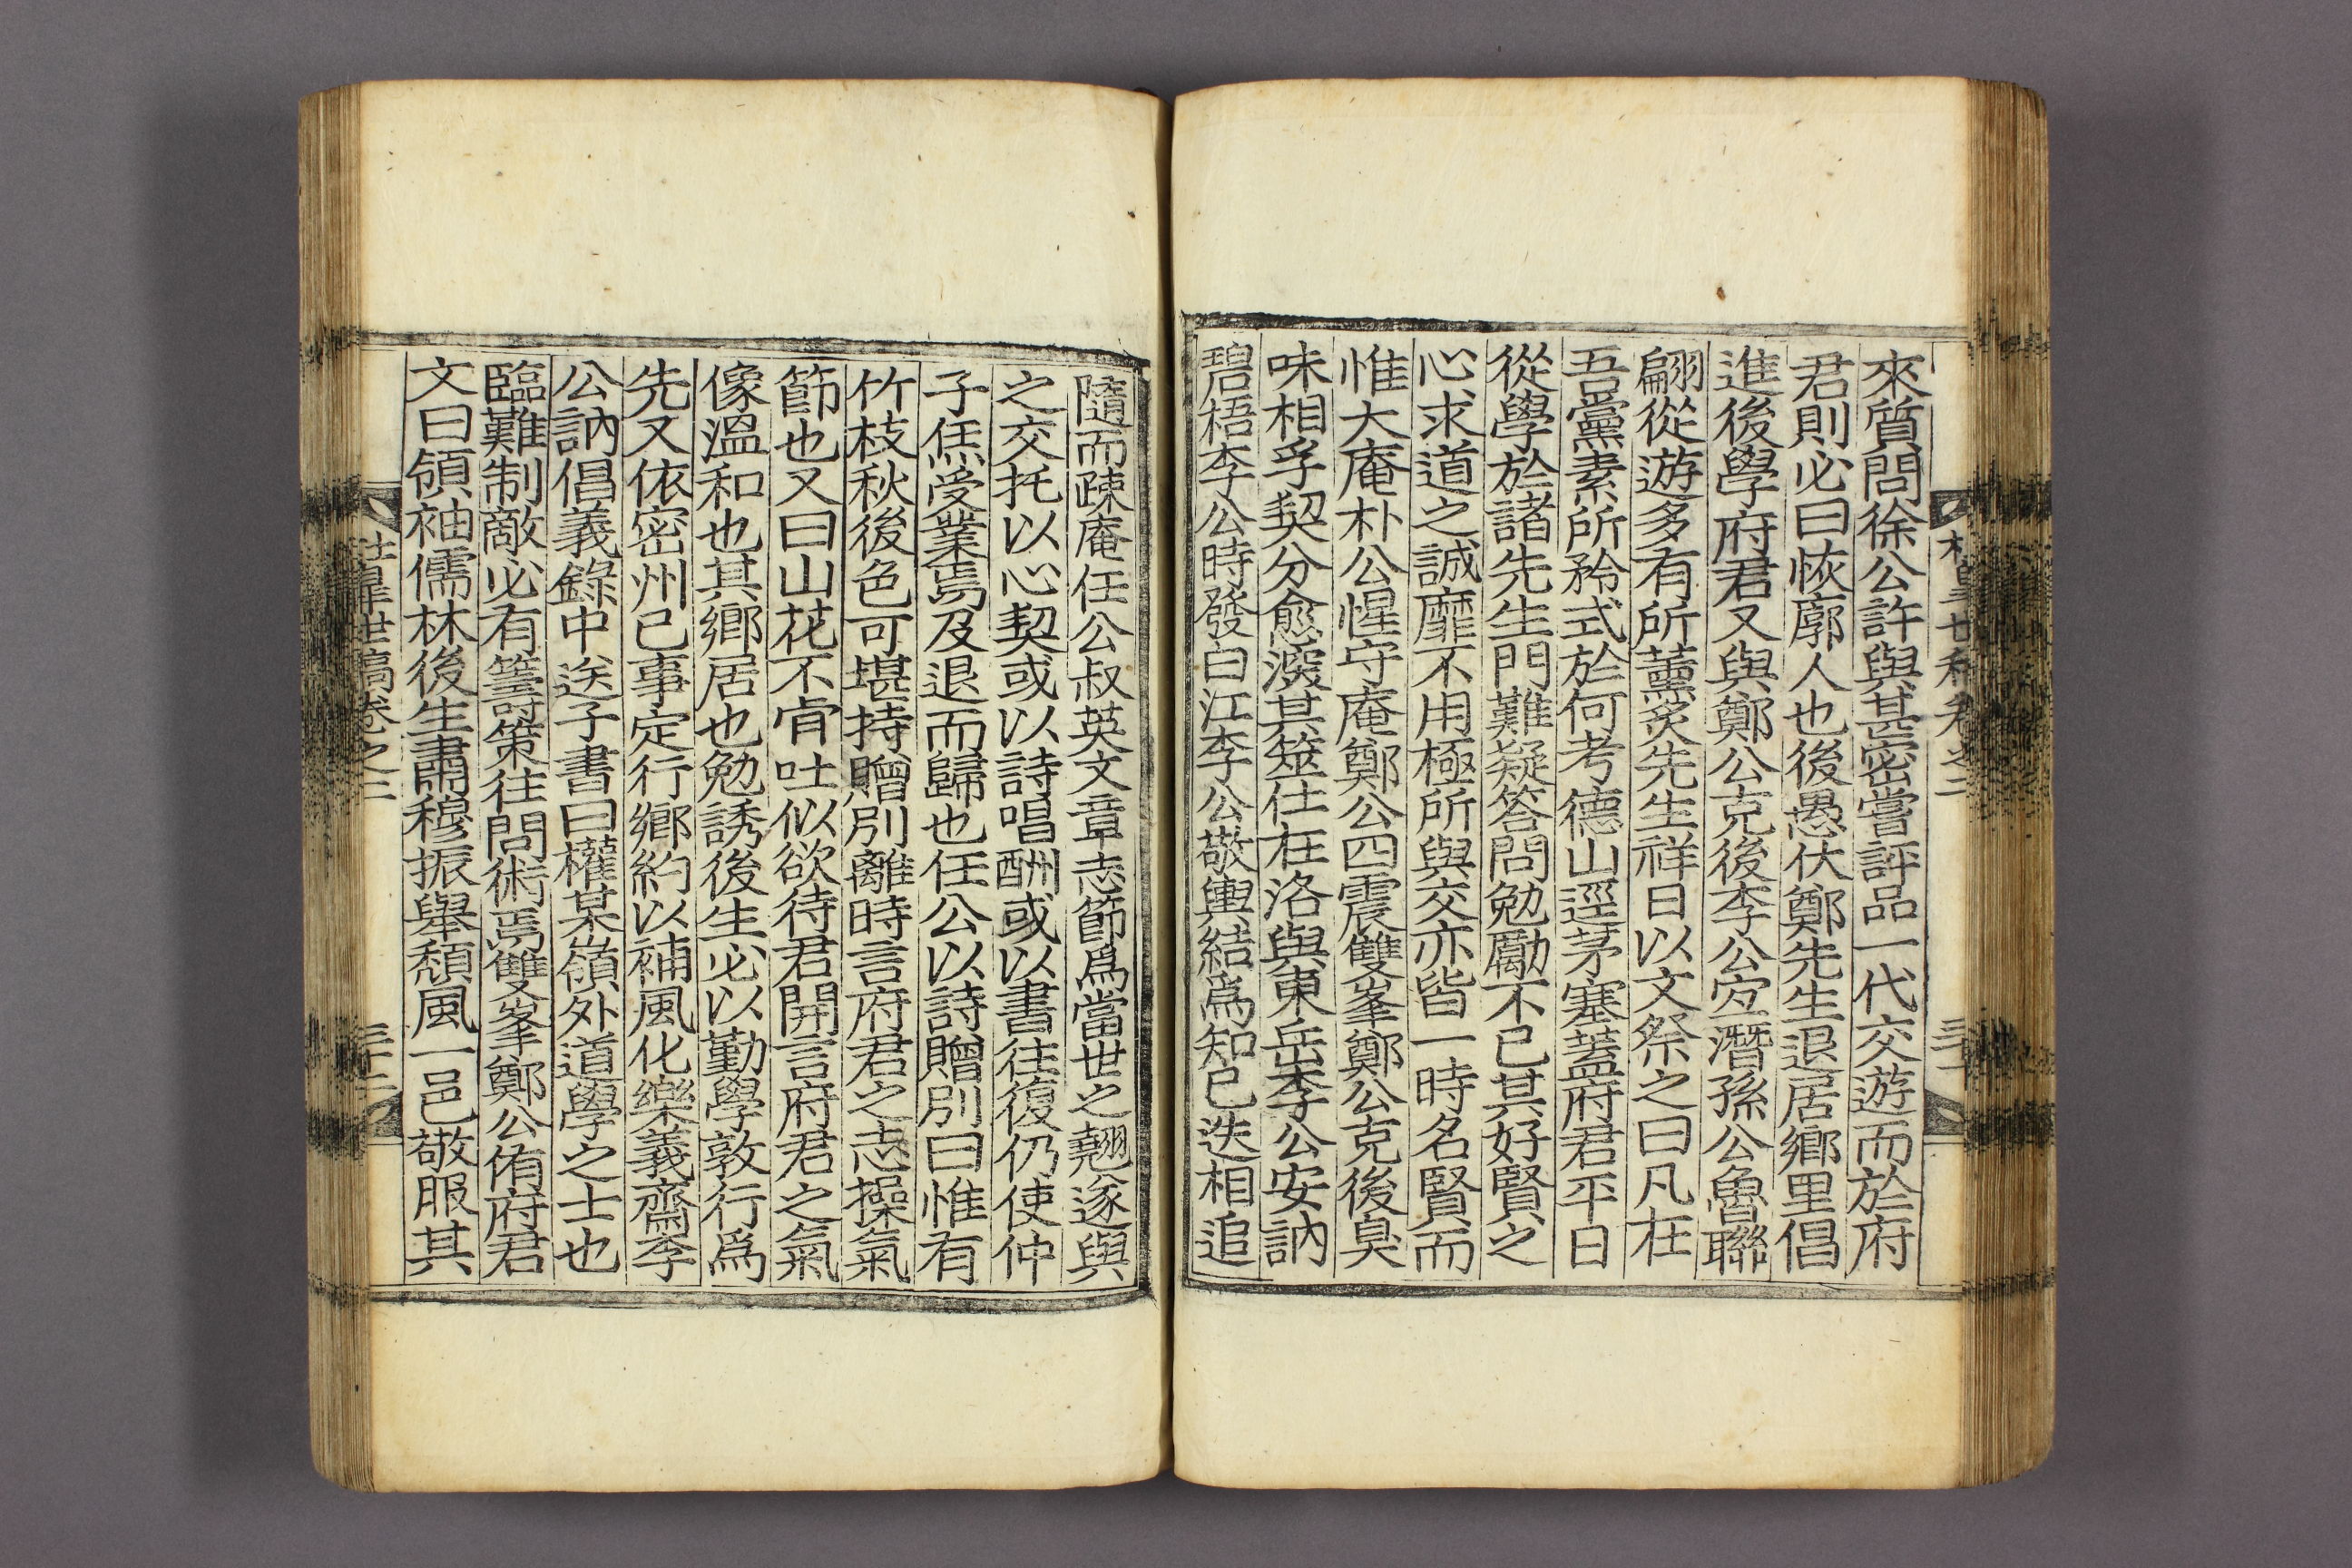 來質問徐公許與甚密嘗評品一代交遊而於府
君則必曰恢廓人也後愚伏鄭先生退居鄉里倡
進後學府君又與鄭公克後李公宜潛孫公魯聯
翩從遊多有所薰炙先生祥日以文祭之曰凡在
吾黨素所矜式於何考德山逕茅塞蓋府君平日
從學於諸先生門難疑答問勉勵不已其好賢之
心求道之誠靡不用極所與交亦皆一時名賢而
惟大庵朴公惺守庵鄭公四震雙峯鄭公克後臭
味相孚契分愈深其筮仕在洛與東岳李公安訥
碧梧李公時發白江李公敬輿結爲知己迭相追
隨而疎庵任公叔英文章志節爲當世之翹遂與
之交托以心契或以詩唱酬或以書往復仍使仲
子㷜受業焉及退而歸也任公以詩贈別曰惟有
竹枝秋後色可堪持贈別離時言府君之志操氣
節也又曰山花不肯吐似欲待君開言府君之氣
像溫和也其鄉居也勉誘後生必以勤學敦行爲
先又依密州已事定行鄉約以補風化樂義齋李
公訥倡義錄中送子書曰權某嶺外道學之士也
臨難制敵必有籌策往問術焉雙峯鄭公侑府君
文曰領袖儒林後生肅穆振擧頹風一邑敬服其
世稿卷之二
三十二